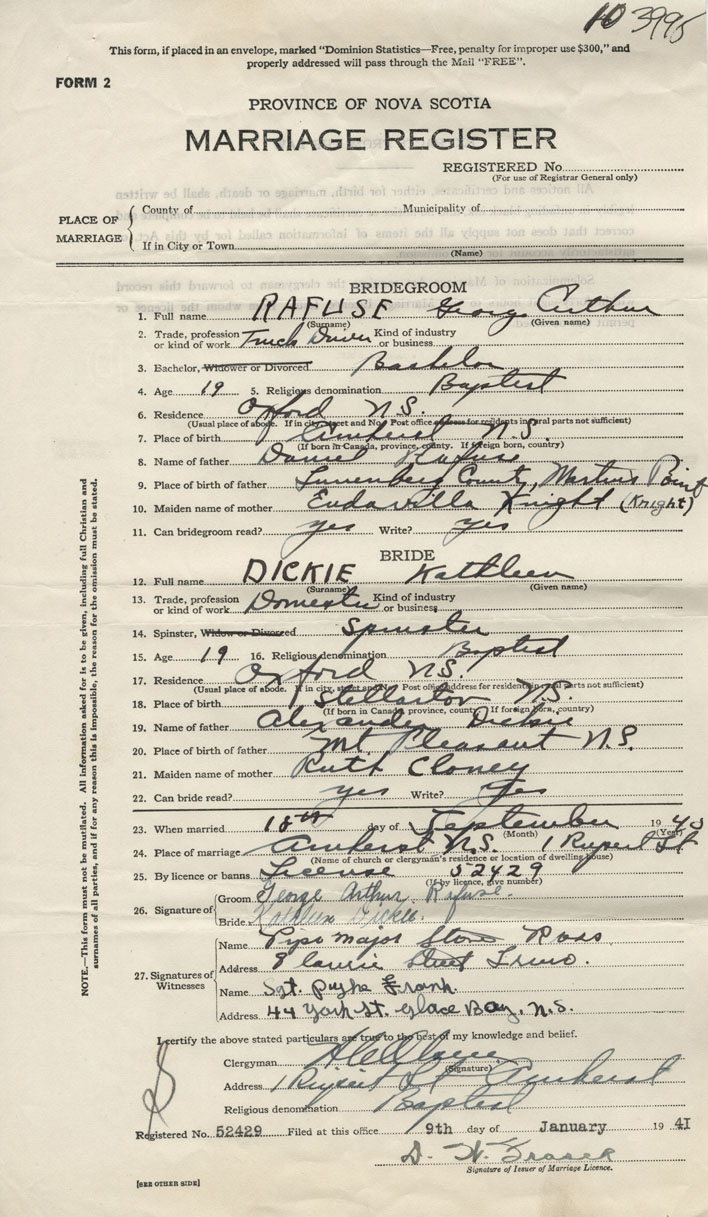 10 3995
This form, if placed in an envelope, marked "Dominion Statistics—Free, penalty for improper use $300," and
properly addressed will pass through the Mail "FREE".
FORM 2
PROVINCE OF NOVA SCOTIA
MARRIAGE REGISTER
REGISTERED No.
(For use of Registrar General only)
PLACE OF MARRIAGE
County of Municipality of
If in City or Town
(Name)
BRIDEGROOM
1. Full name RAFUSE George Arthur
(Surname) (Given name)
2. Trade, profession or kind of work Truck Driver Kind of industry or business
3. Bachelor, Widower or Divorced Bachelor
4. Age 19 5. Religious denomination Baptist
6. Residence Oxford N.S.
(Usual place of abode. If in city, street and No. Post office address for residents in rural parts not sufficient)
7. Place of birth Amherst N.S.
(If born in Canada, province, county. If foreign born, country)
8. Name of father Daniel Rafuse
9. Place of birth of father Lunenberg County, Martins Point
10. Maiden name of mother Knight (Knight)
11. Can bridegroom read? yes Write? yes
BRIDE
12. Full name DICKIE Kathleen
(Surname) (Given name)
13. Trade, profession or kind of work Domestic Kind of industry or business
14. Spinster, Widow or Divorced Spinster
15. Age 19 16. Religious denomination Baptist
17. Residence Oxford N.S.
(Usual place of abode. If in city, street and No. Post office address for residents in rural parts not sufficient)
18. Place of birth Stellarton N.S.
(If born in Canada, province, county. If foreign born, country)
19. Name of father Alexander Dickie
20. Place of birth of father Mt. Pleasant N.S.
21. Maiden name of mother Ruth Cloney
22. Can bride read? yes Write? yes
23. When married 18th day of September 1940
(Month) (Year)
24. Place of marriage Amherst N.S. 1 Rupert St
(Name of church or clergyman's residence or location of dwelling house)
25. By licence or banns License 52429
(If by licence, give number)
26. Signature of
Groom George Arthur Rafuse.
Bride Kathleen Dickie.
27. Signatures of Witnesses
Name Pipe major Ross
Address Street Truro.
Name Sgt. Pyke Frank.
Address 44 York St. Glace Bay, N.S.
I certify the above stated particulars are true to the best of my knowledge and belief.
Clergyman
(Signature)
Address 1 Rupert St Amherst
Religious denomination Baptist
Registered No. 52429 Filed at this office 9th day of January 1941
D. W. Fraser
Signature of Issuer of Marriage Licence.
[SEE OTHER SIDE]
NOTE.—This form must not be mutilated. All information asked for is to be given, including full Christian and
surnames of all parties, and if for any reason this is impossible, the reason for the omission must be stated.